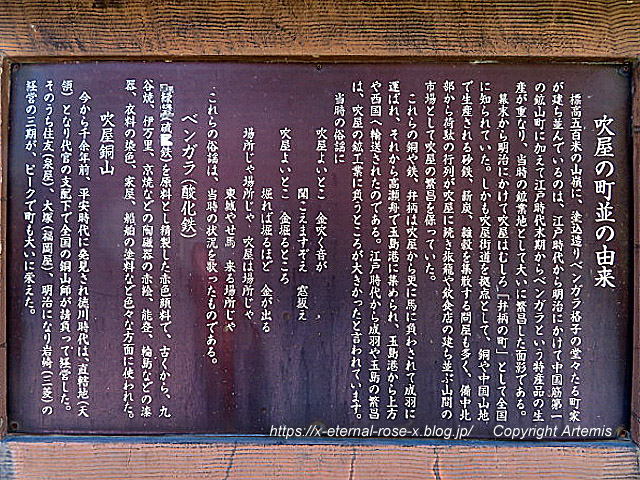 吹屋の町並の由来
標高五百米の山嶺に、塗込造りベンガラ格子の堂々たる町家
が建ち並んでいるのは、江戸時代から明治にかけて中国筋第一
の鉱山町に加えて江戸時代末期からベンガラという特産品の生
産が重なり、当時の鉱業地として大いに繁昌した面影である。
幕末から明治にかけて吹屋はむしろ『弁柄の町』として全国
に知られていた。しかも吹屋街道を拠点として、銅や中国山地
で生産される砂鉄、薪炭、雑穀を集散する問屋も多く、備中北
部から荷駄の行列が吹屋に続き旅籠や飲食店の建ち並ぶ山間の
市場として吹屋の繁昌を保っていた。
これらの銅や鉄、弁柄は吹屋から更に馬に負わされて成羽に
運ばれ、それから高瀬舟で玉島港に集められ、玉島港から上方
や西国へ輸送されたのである。江戸時代から成羽や玉島の繁昌
は、吹屋の鉱工業に負うところが大きかったと言われています。
当時の俗謡に
吹屋よいとこ 金吹く音が
聞こえますぞえ 窓坂え
吹屋よいとこ 金掘るところ
掘れば掘るほど 金が出る
場所じゃ場所じゃ 吹屋は場所じゃ
東城やせ馬 来る場所じゃ
これらの俗謡は、当時の状況を歌ったものである。
ベンガラ（酸化鉄）
『緑礬（硫酸鉄）を原料とし精製した赤色顔料で、古くから、九
谷焼、伊万里、京焼などの陶磁器の赤絵、能登、輪島などの漆
器、衣料の染色、家屋、船舶の塗料など色々な方面に使われた。
吹屋銅山
今から千余年前、平安時代に発見され徳川時代は、直轄地（天
領）となり代官の支配下で全国の銅山師が請負って経営した。
そのうち住友（泉屋）、大塚（福岡屋）、明治になり岩崎（三菱）の
経営の三期が、ピークで町も大いに栄えた。
https://x-eternal-rose-x.blog.jp/ Copyright Artemis